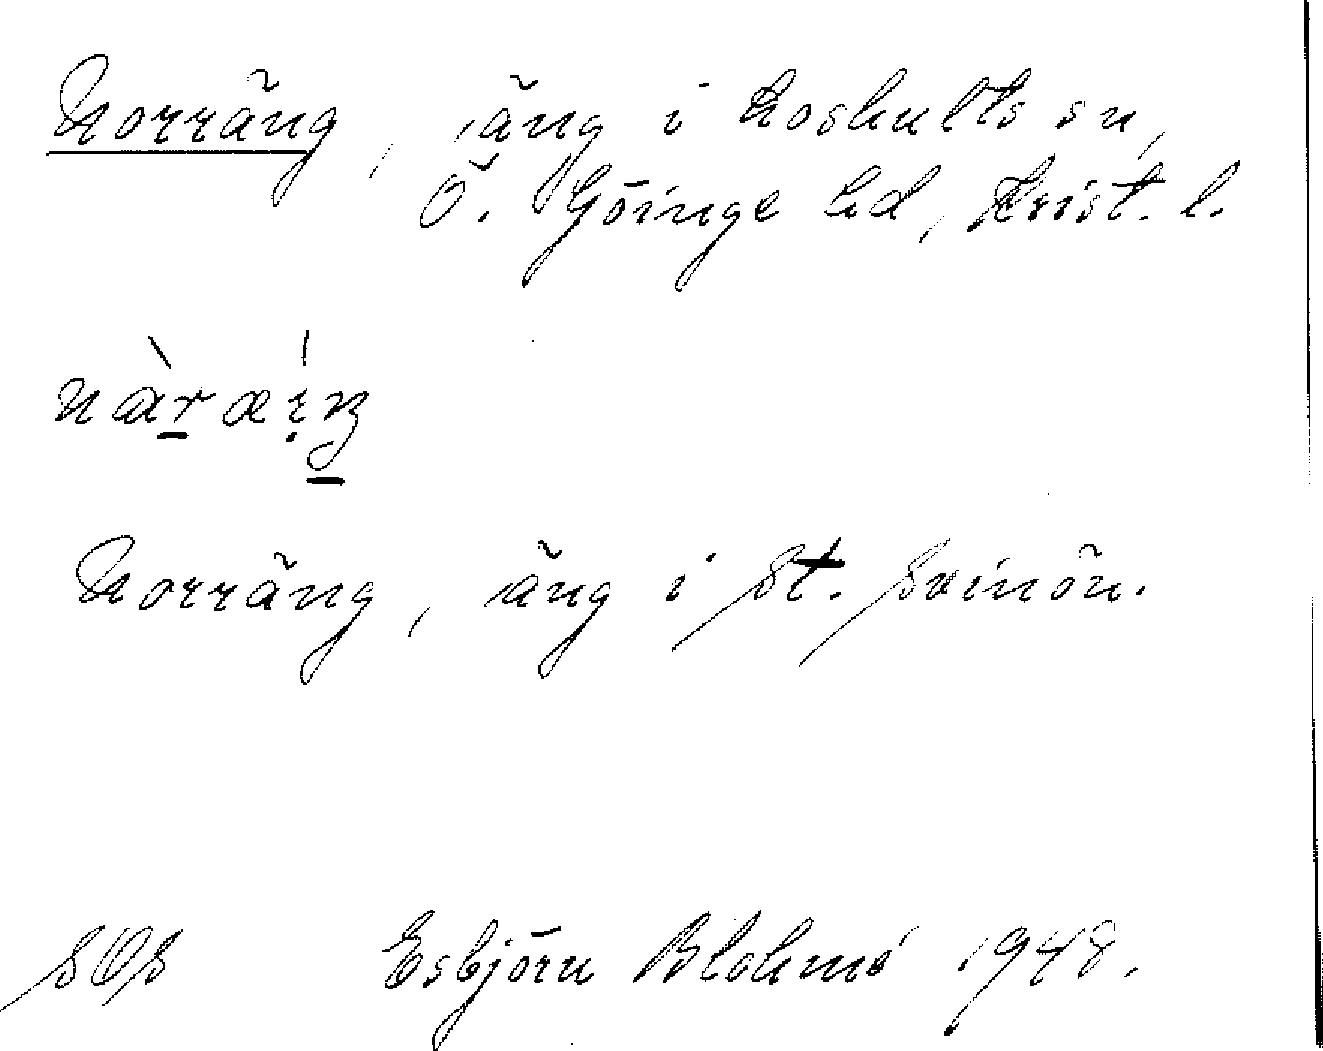 Norräng, äng i Loshults sn,
Ö. Göinge hd, Krist. l.
nàræ̀ŋ
Norräng, äng i St. Svinön.
SOS Esbjörn Blohmé 1948.